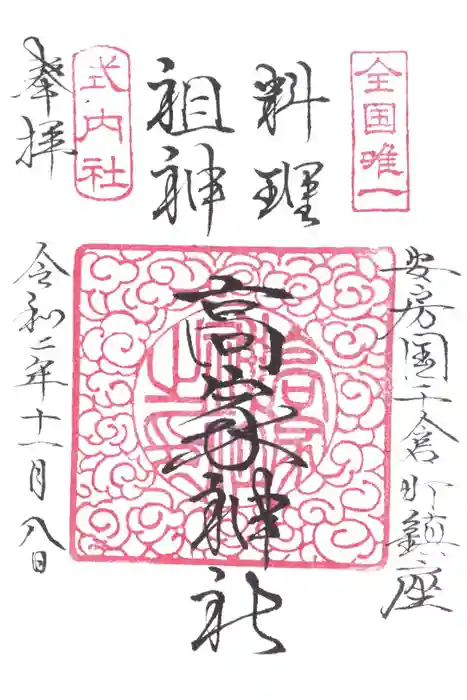 全国唯一
安房国千倉町鎮座
料理
祖神
高家神社
式内社
奉拝
令和二年十一月八日